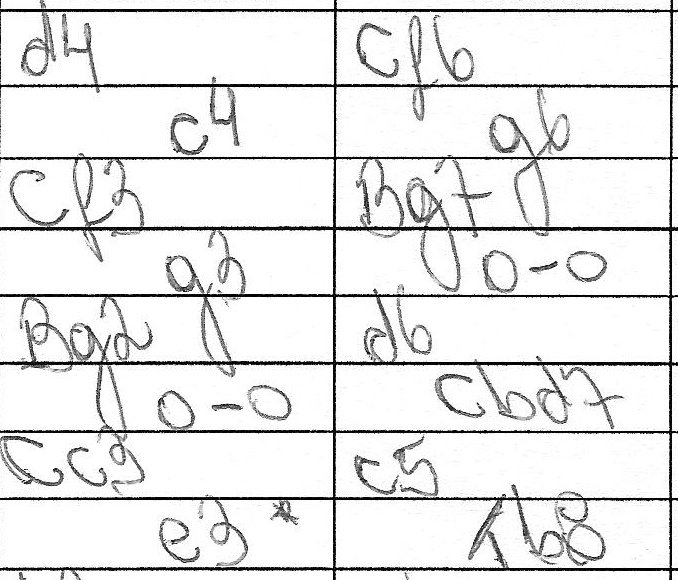 d4 Cf6
c4 g6
Cf3 Bg7
g3 0-0
Bg2 d6
0-0 Cbd7
Cc3 c5
e3* Tb8